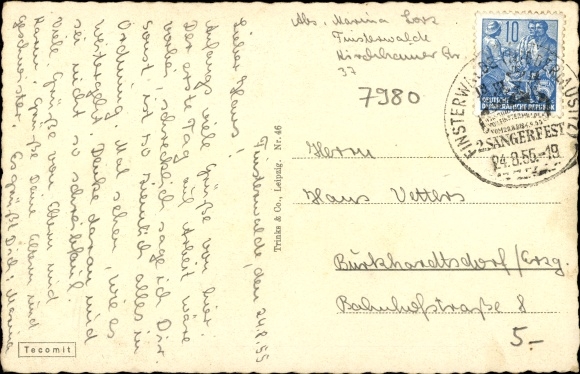 Abs. Marina Lorz
Finsterwalde
Kirchhainer Str.
37
7980
10
DEUTSCHE
DEMOKRATISCHE REPUBLIK
FINSTERWALDE (NIEDERLAUSITZ)
2. SÄNGERFEST
24.8.55.-19
Finsterwalde, den 24.8.55
Lieber Hans!
Anfangs viele Grüße von hier.
Der erste Tag auf Arbeit wäre
vorbei, schrecklich sage ich Dir.
Sonst ist so ziemlich alles in
Ordnung. Mal sehen, wie es
weitergeht. Denke daran und
sei nicht so schreibfaul.
Viele Grüße von Eltern und
Karin. Grüße Deine Eltern und
Geschwister. Es grüßt Dich, Marina
Trinks & Co., Leipzig. Nr. 46
Herrn
Hans Vetters
Burkhardtsdorf/Erzg.
Bahnhofstraße 8
5.-
Tecomit